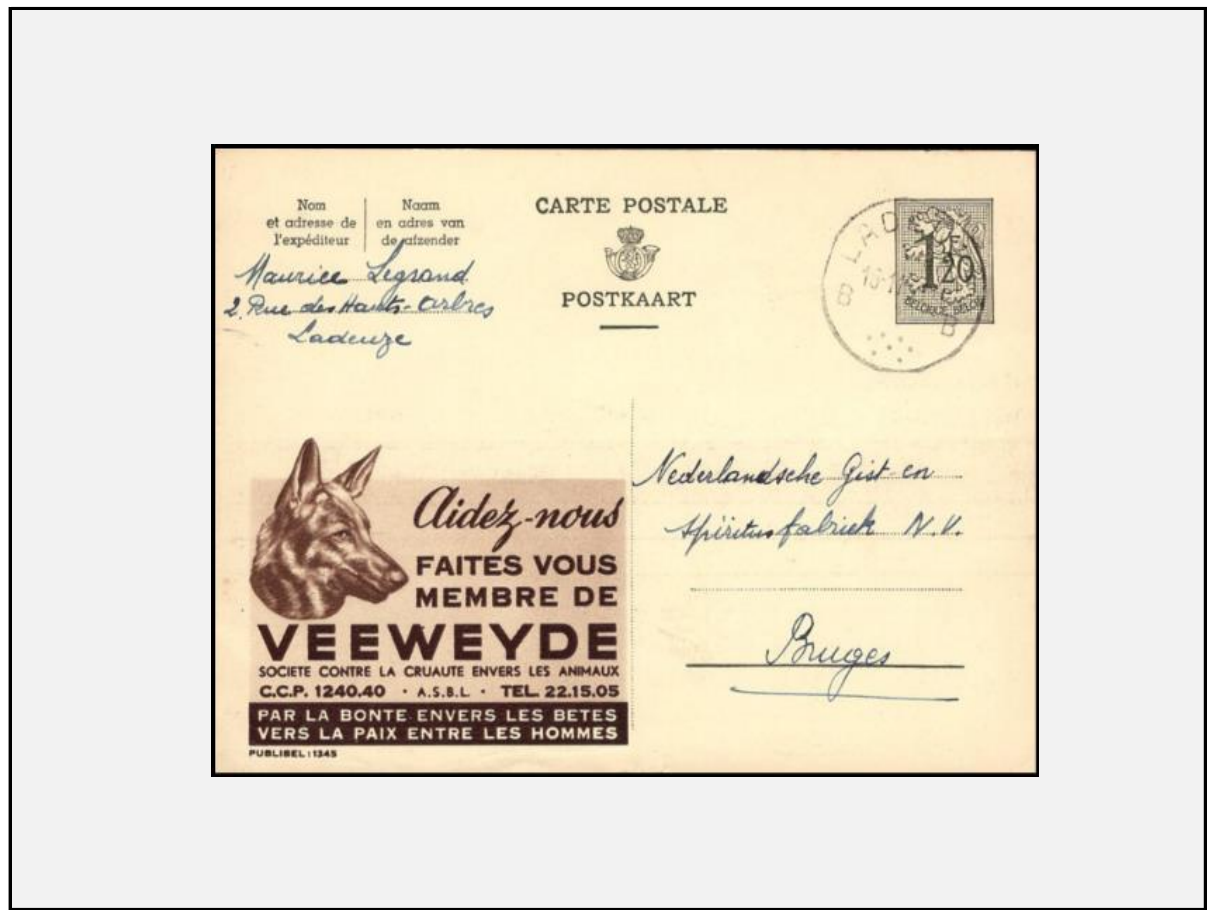 Nom
et adresse de
l'expéditeur
Naam
en adres van
de afzender
CARTE POSTALE
POSTKAART
Maurice Legrand
2. Rue des Hauts-Arbres
Ladeuze
B
B
1F
20
BELGIQUE BELGIE
Nederlandsche Gist-en
Spiritusfabriek N.V.
Bruges
Aidez-nous
FAITES VOUS
MEMBRE DE
VEEWEYDE
SOCIETE CONTRE LA CRUAUTE ENVERS LES ANIMAUX
C.C.P. 1240.40 · A.S.B.L. · TEL. 22.15.05
PAR LA BONTE ENVERS LES BETES
VERS LA PAIX ENTRE LES HOMMES
PUBLIBEL : 1345